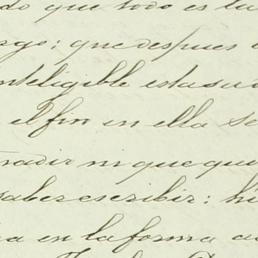 do que todo es la
rgo; que despues
inteligible esta su
el fin en ella se
nadir ni que qui
saber escribir: h
ra en la forma